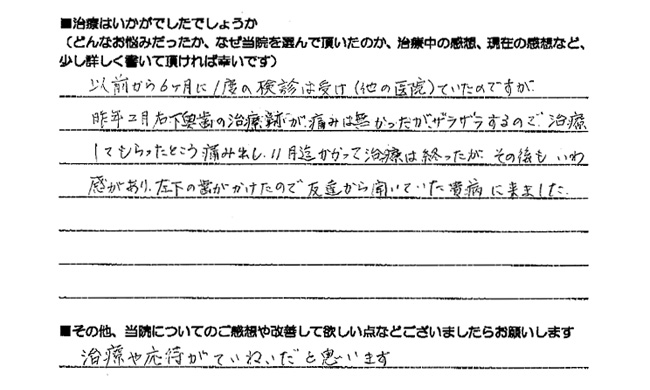 ■治療はいかがでしたでしょうか
（どんなお悩みだったか、なぜ当院を選んで頂いたのか、治療中の感想、現在の感想など、
少し詳しく書いて頂ければ幸いです）
以前から6ヶ月に1度の検診は受け（他の医院）ていたのですが
昨年2月右下奥歯の治療跡が、痛みは無かったが、ザラザラするので、治療
してもらったところ痛み出し、11月迄かかって治療は終ったが、その後も いわ
感があり、左下の歯がかけたので友達から聞いていた貴病に来ました。
■その他、当院についてのご感想や改善して欲しい点などございましたらお願いします
治療や応待がていねいだと思います